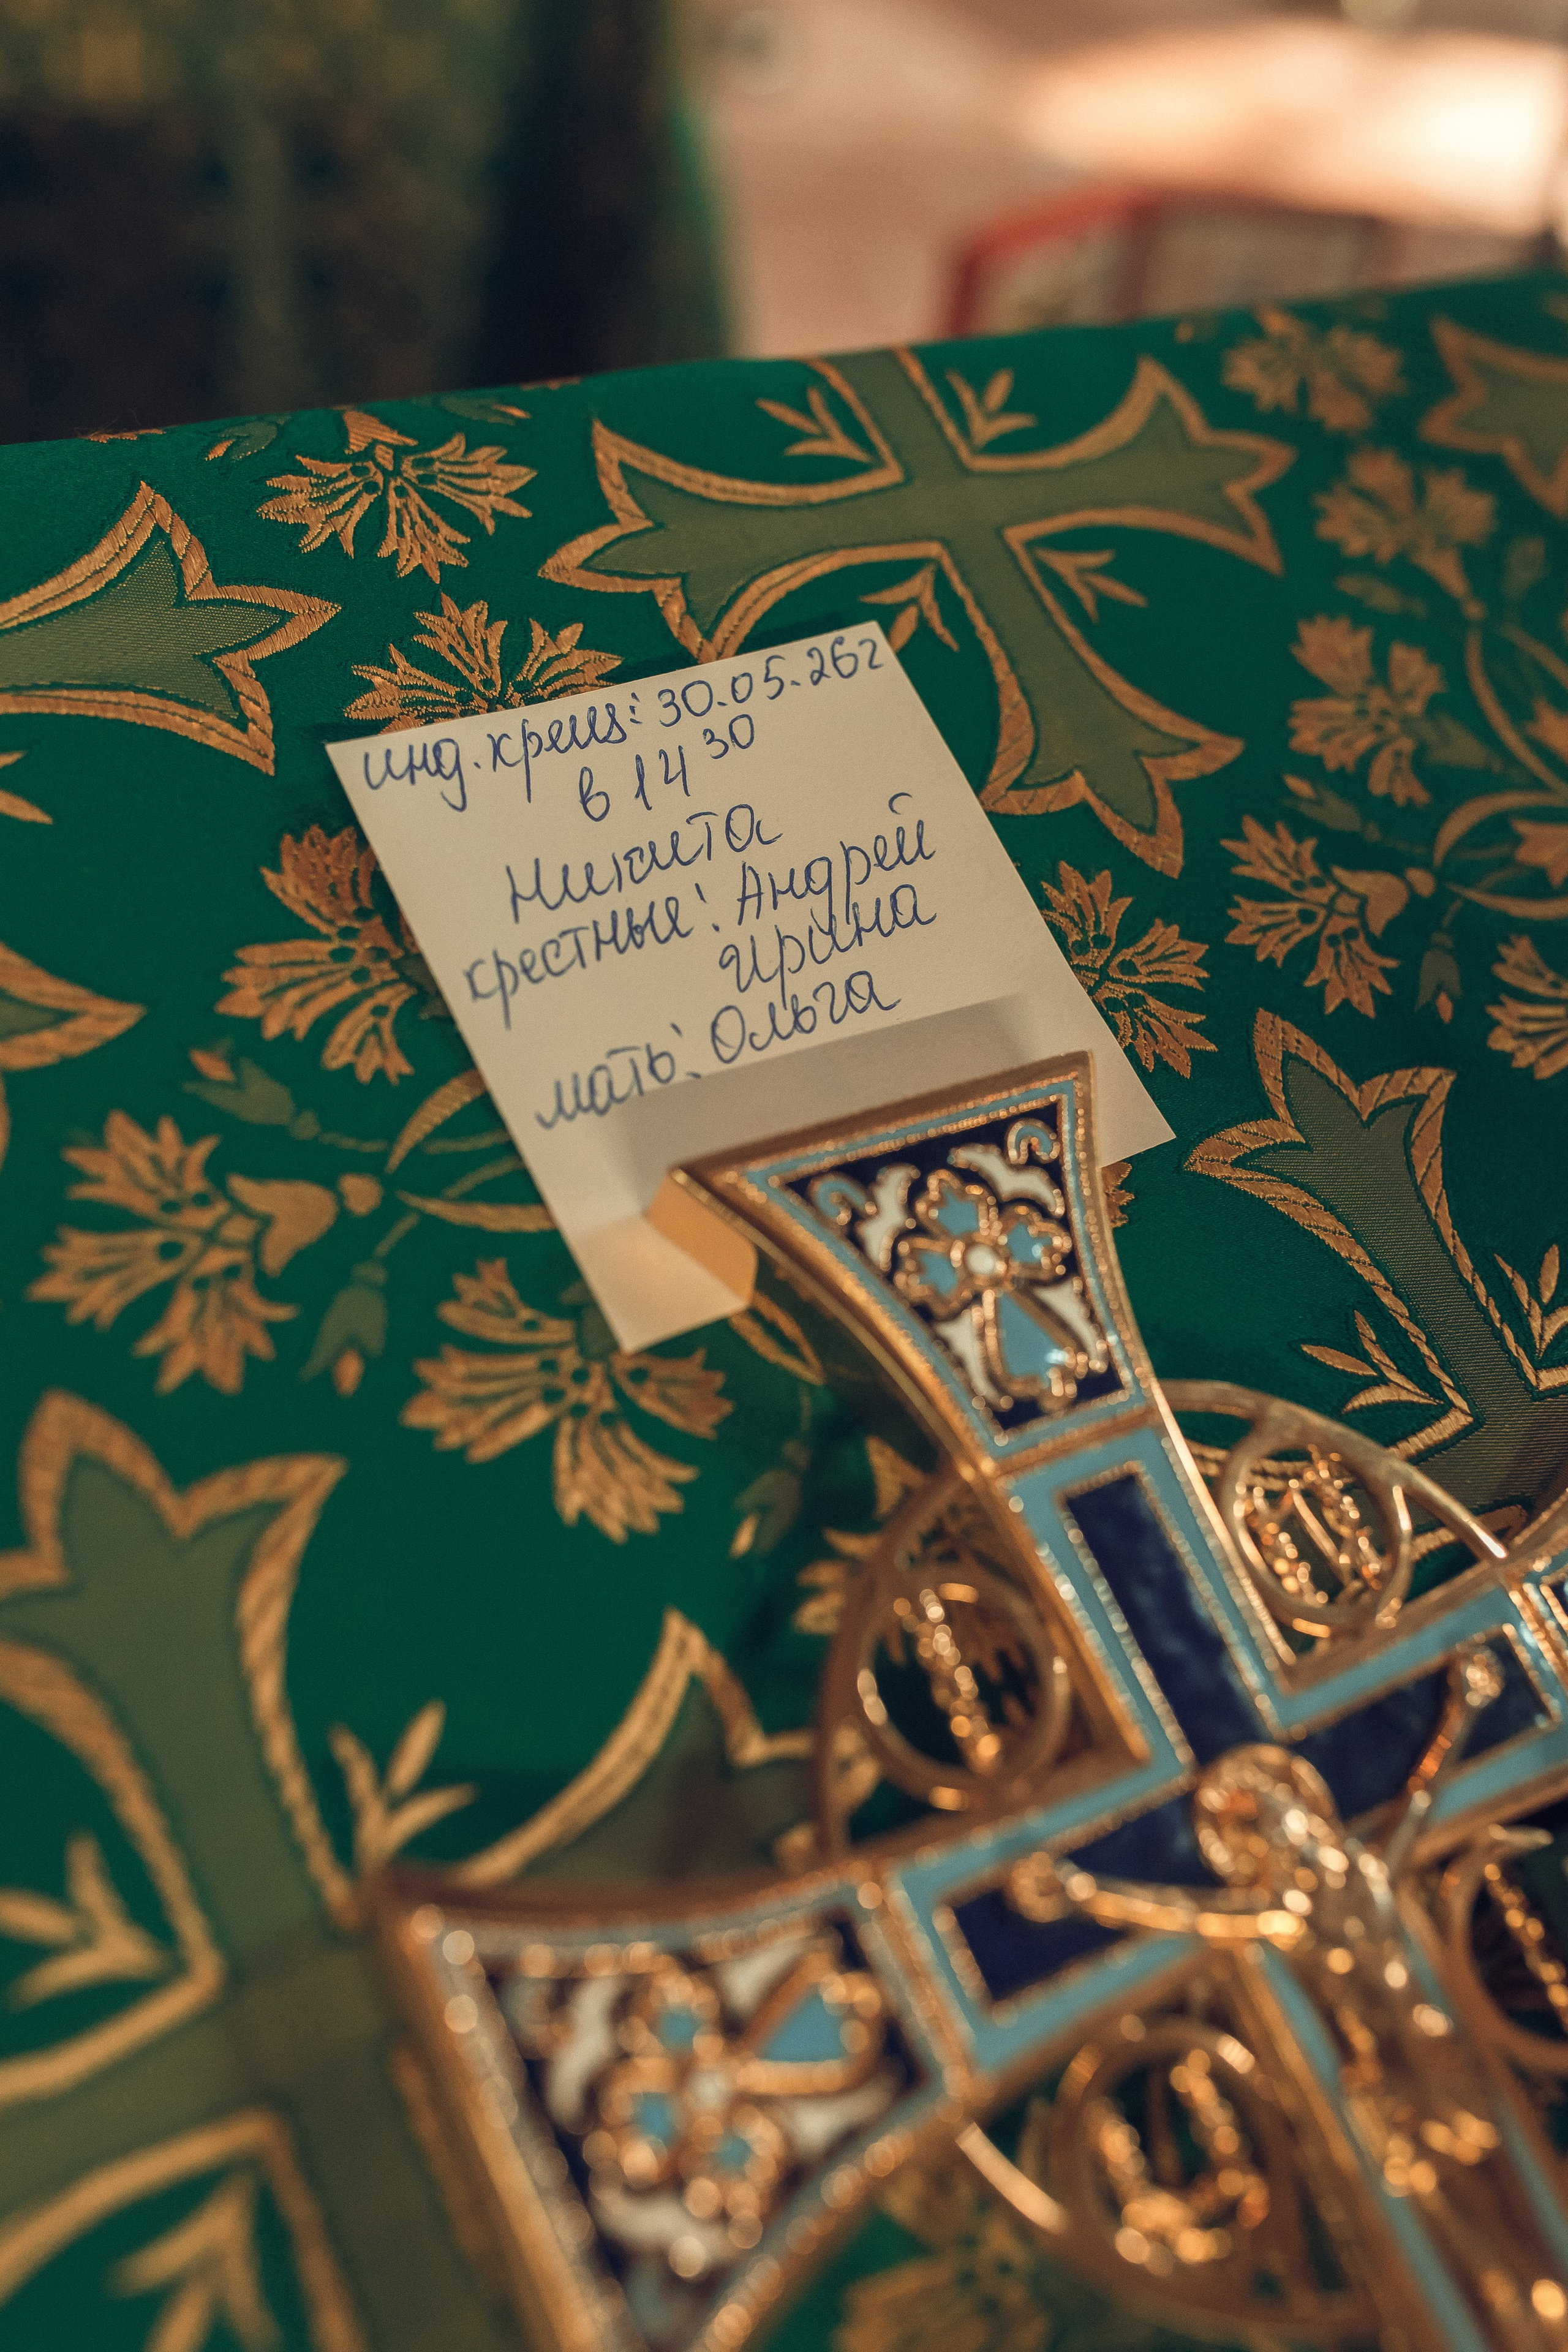 инд. крещ: 30.05.26г
в 14 30
Никита
крестные: Андрей
Ирина
мать: Ольга